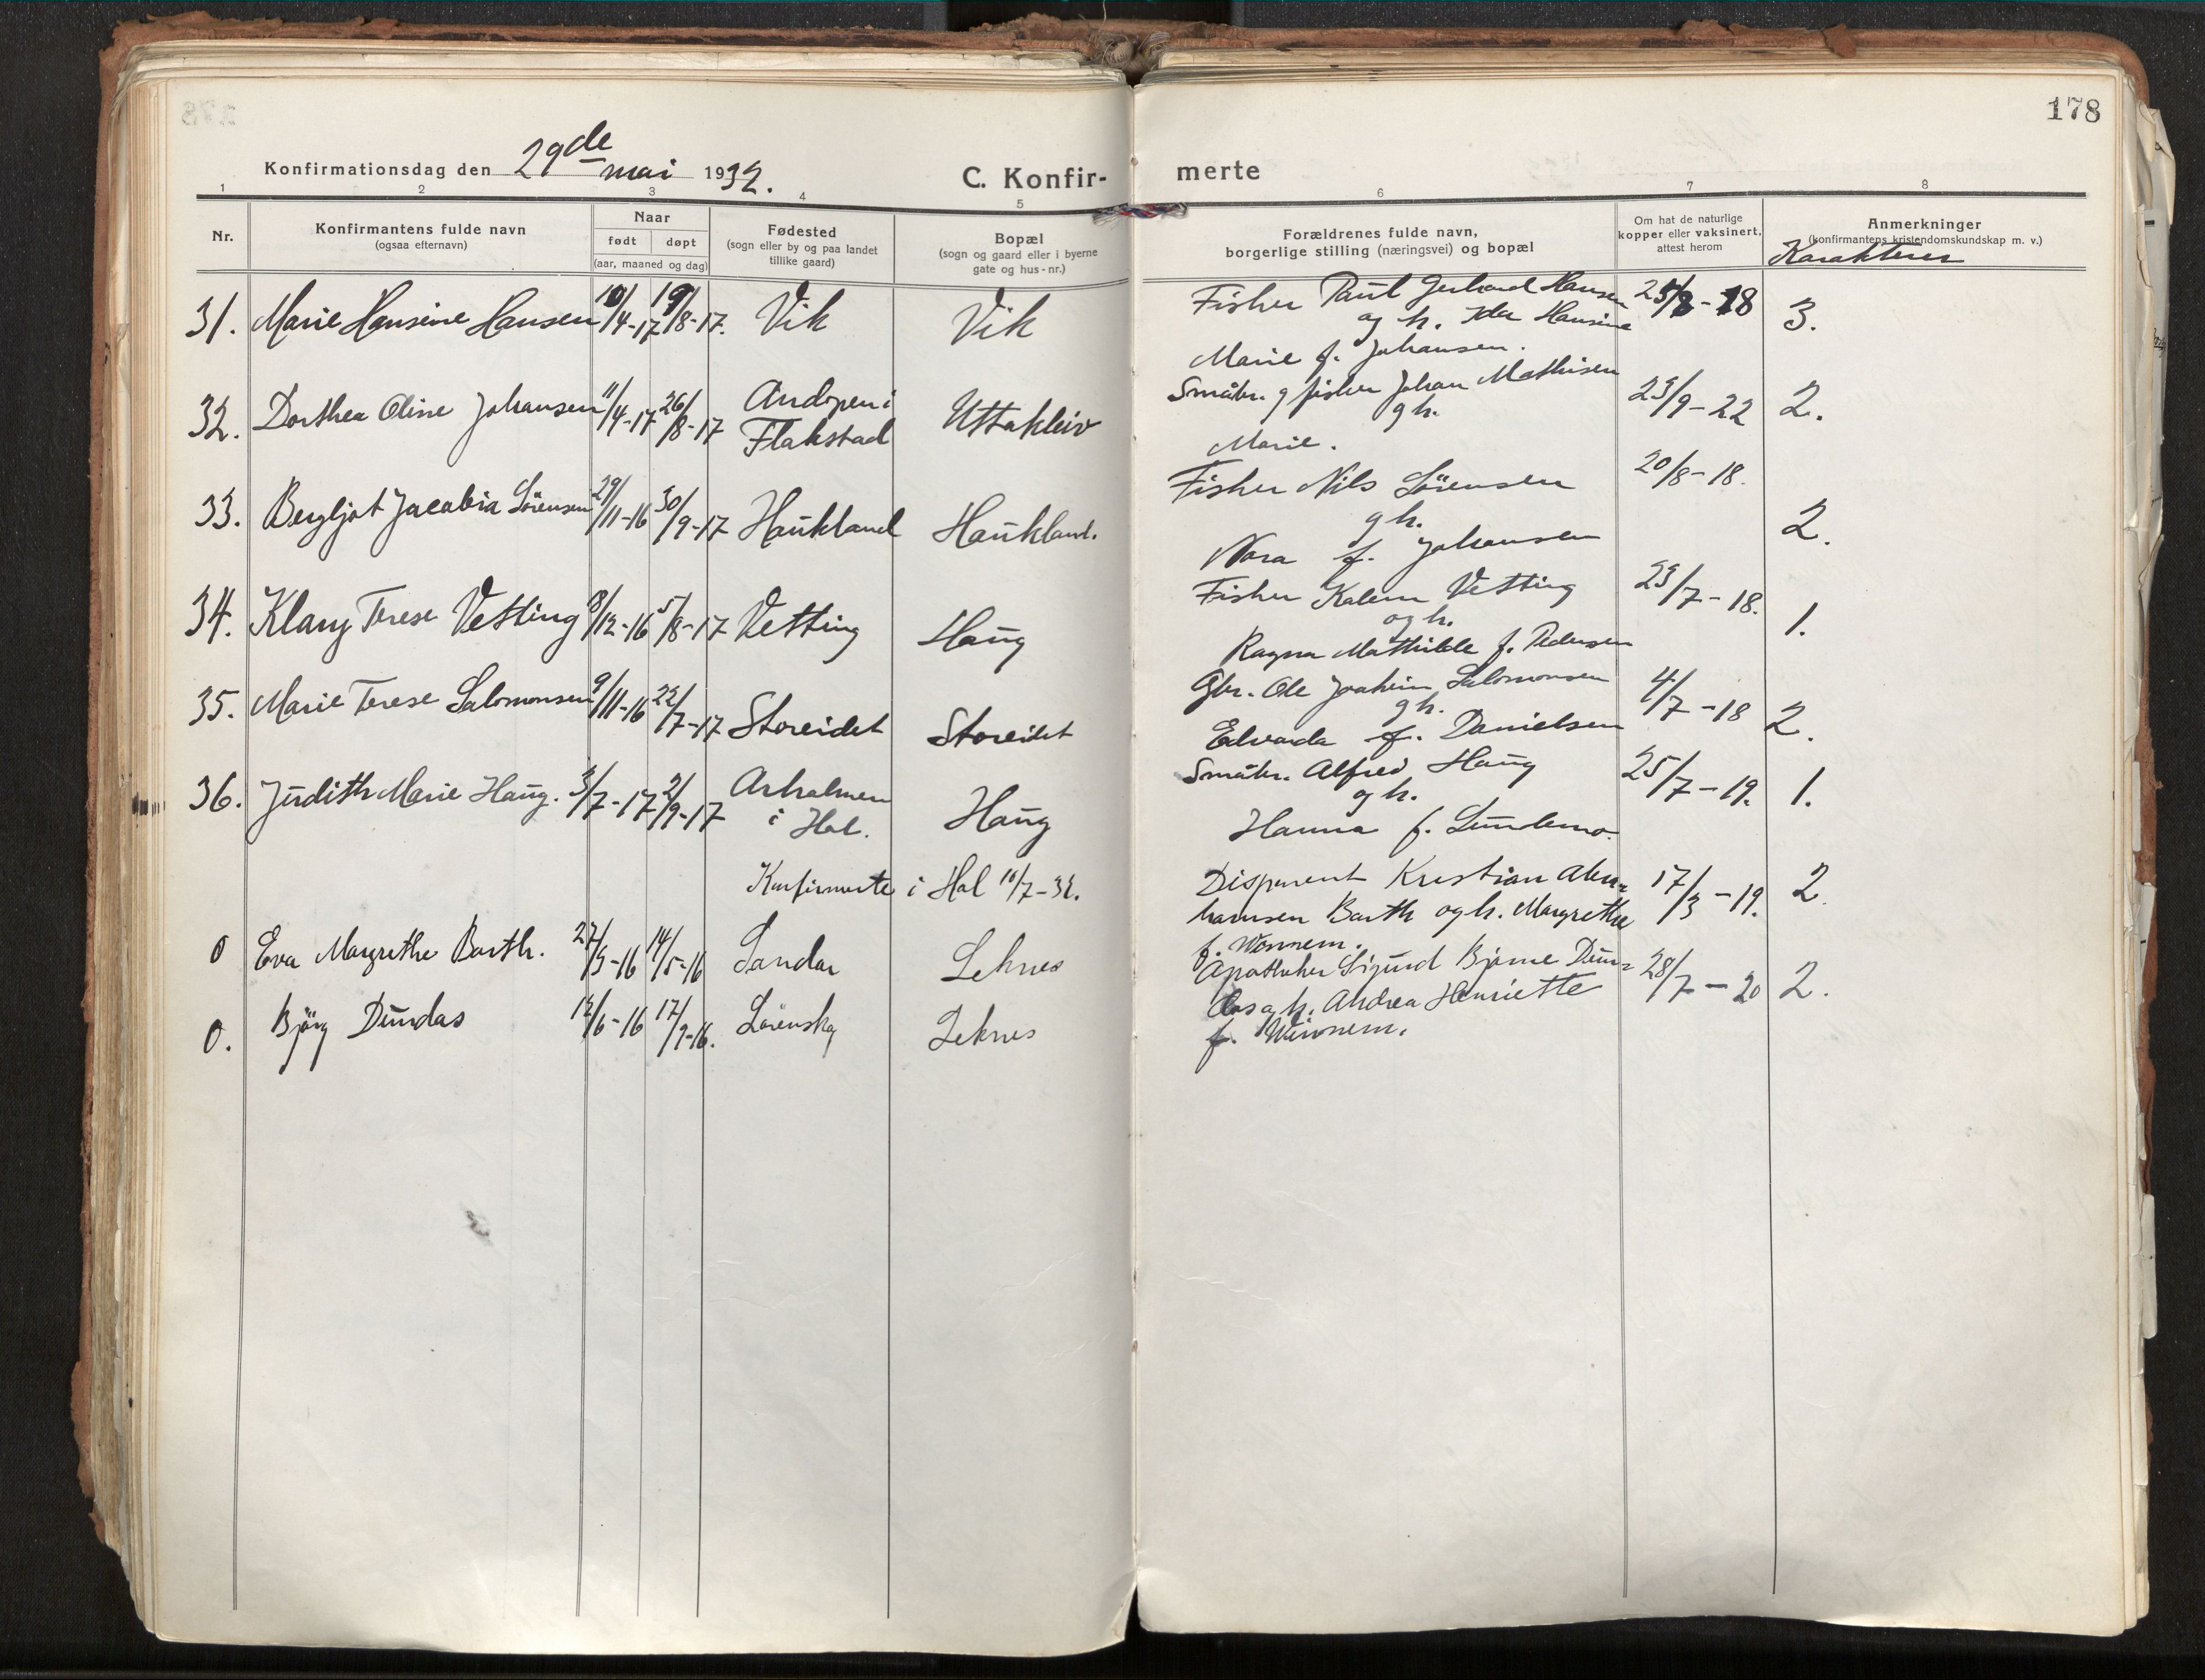 178
Konfirmationsdag den 29de mai 1932.
C. Konfir-
merte
1 2 3 4 5 6 7 8
Nr.
Konfirmantens fulde navn
(ogsaa efternavn)
Naar
født døpt
(aar, maaned og dag)
Fødested
(sogn eller by og paa landet
tillike gaard)
Bopæl
(sogn og gaard eller i byerne
gate og hus-nr.)
Forældrenes fulde navn,
borgerlige stilling (næringsvei) og bopæl
Om hat de naturlige
kopper eller vaksinert,
attest herom
Anmerkninger
(konfirmantens kristendomskundskap m. v.)
Karakterer
31. Marie Hansine Hansen 10/4-17 19/8-17. Vik Vik
Fisker Paul Gerhard Hansen
og h. Ida Hansine
Marie f. Johansen.
3.
32. Dorthea Oline Johansen 11/4-17 26/8-17 Andopen i
Flakstad
Uttakleiv
Småbr. g fisker Johan Mathisen
g h.
Marie.
23/9-22 2.
33. Bergljot Jacobia Sörensen 29/11-16 30/9-17 Haukland Haukland.
Fisker Nils Sörensen
g h.
Nora f. Johansen
20/8-18. 2.
34. Klary Terese Vetting 8/12-16 5/8-17 Vetting Haug
Fisker Kalem Vetting
og h.
Ragna Mathilde f. Pedersen
23/7-18. 1.
35. Marie Terese Salomonsen 9/11-16 22/7-17 Storeidet Storeidet
Gbr. Ole Joakim Salomonsen
g h.
Edvarda f. Danielsen
4/7-18 2.
36. Judith Marie Haug. 3/7-17 2/9-17 Arholmen
i Hol.
Haug
Småbr. Alfred Haug
og h.
Hanna f. Lundemo.
25/7-19. 1.
Konfirmerte i Hol 10/7-32.
0 Eva Margrethe Barth. 27/3-16 14/5-16 Sandar Leknes
Disponent Kristian Abra=
hamsen Barth og h. Margrethe
f. Wonnem.
17/3-19. 2.
0. Bjørg Dundas 12/6-16 17/9-16. Lörenskog Leknes
Apotheker Sigurd Bjarne Dun=
das og h. Andrea Henriette
f. Winnem.
28/7-20 2.